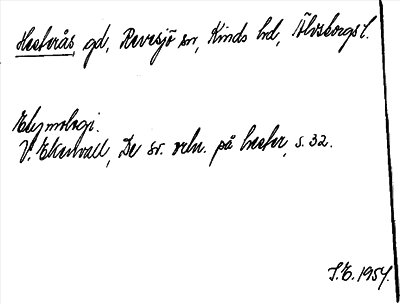 Hesterås, gd, Revesjö sn, Kinds hd, Älvsborgs l.
Etymologi.
V. Ekenvall, De sv. ortn. på hester, s. 32.
S.E. 1954.